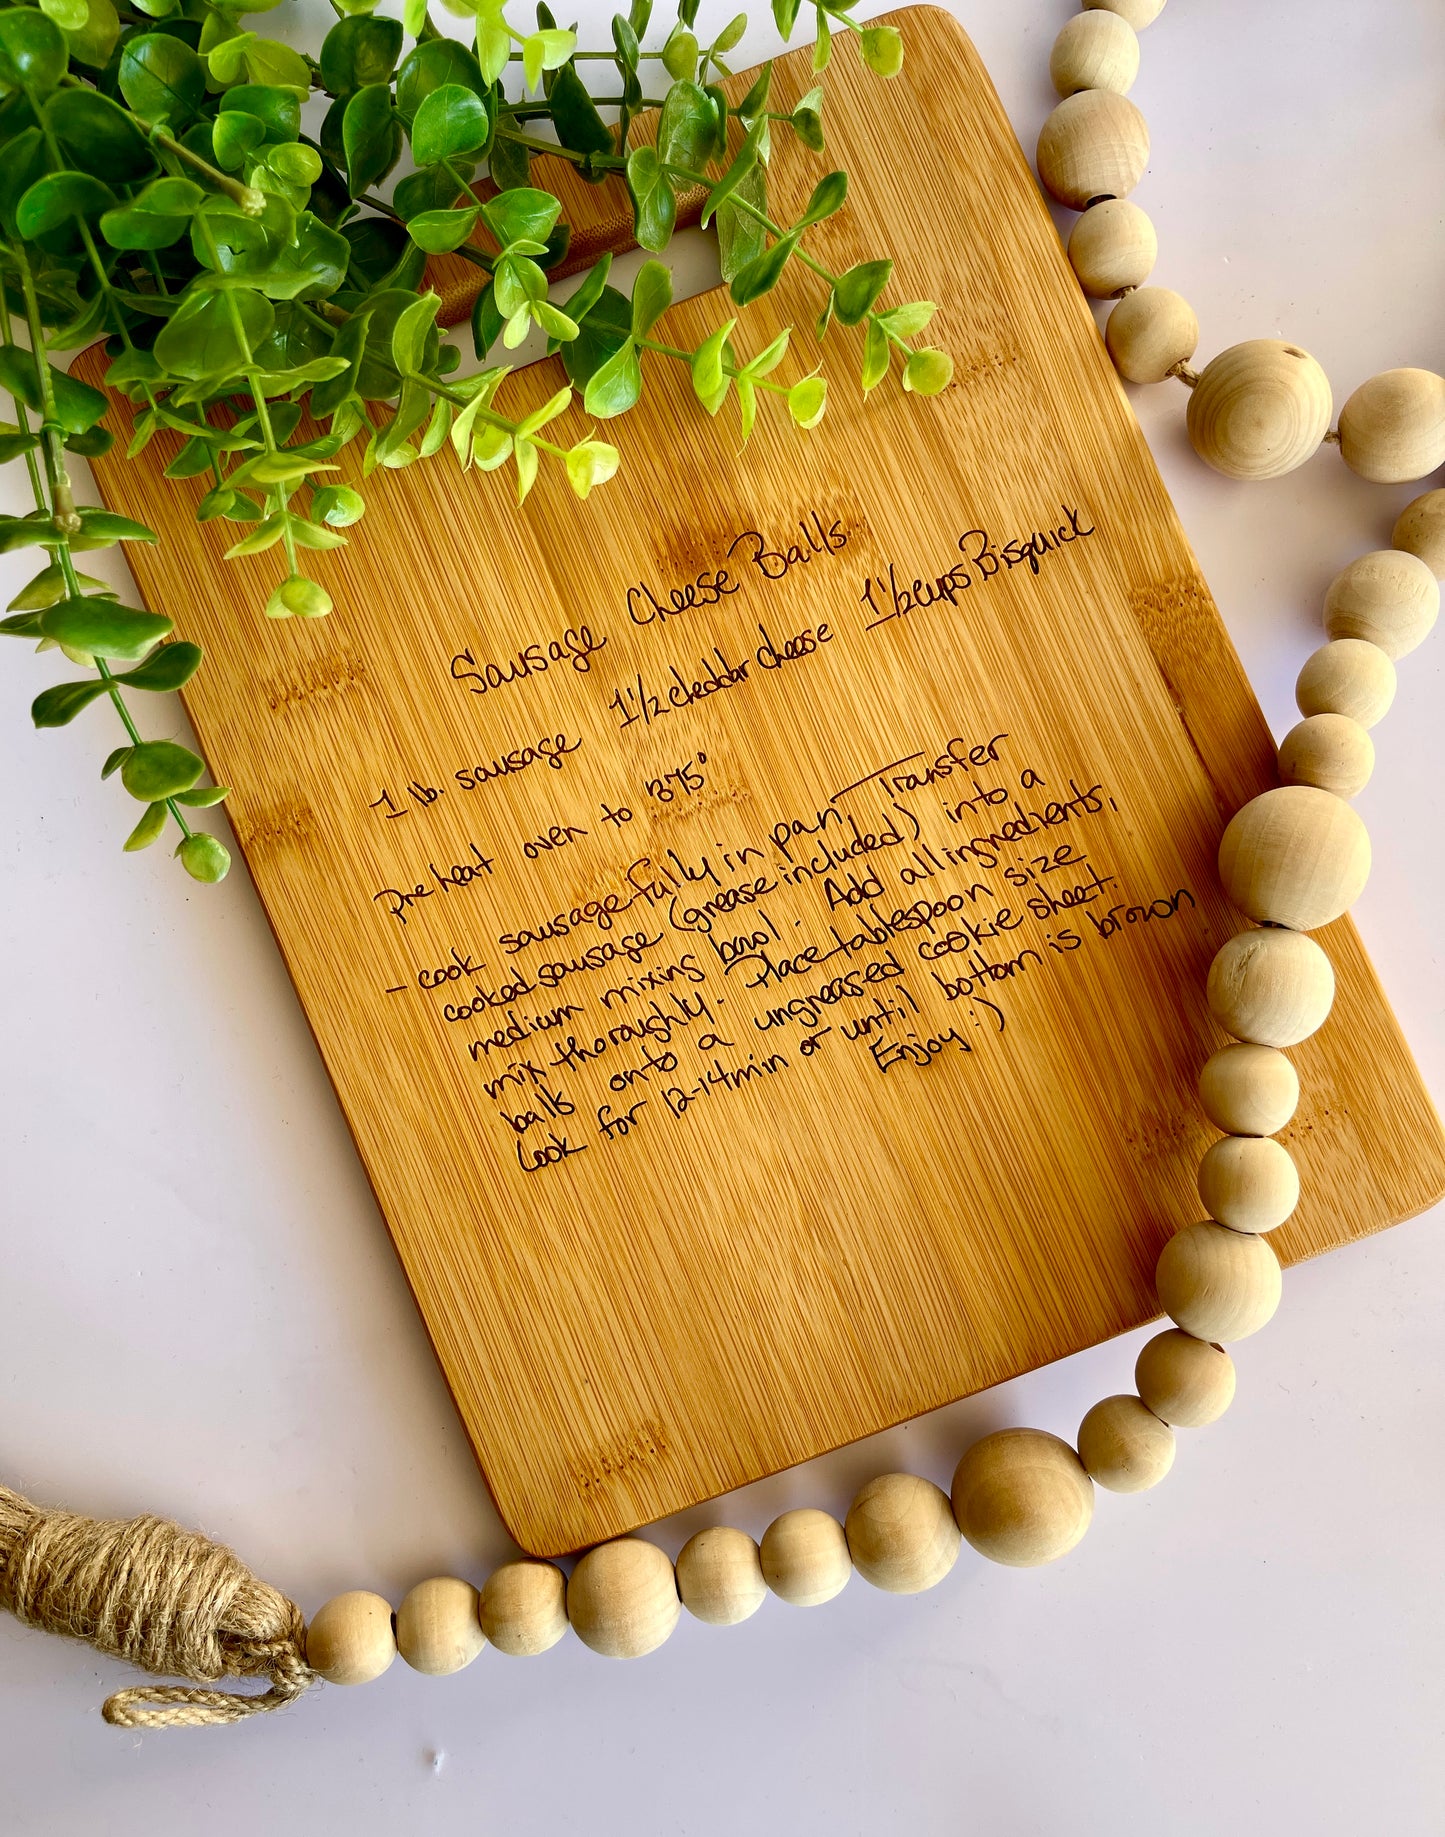 Sausage Cheese Balls
1 lb. sausage 1 1/2 cheddar cheese 1 1/2 cups Bisquick
Pre heat oven to 375°
- cook sausage fully in pan, Transfer
cooked sausage (grease included) into a
medium mixing bowl. Add all ingredients,
mix thoroughly. Place tablespoon size
balls onto a ungreased cookie sheet.
Cook for 12-14min or until bottom is brown
Enjoy :)